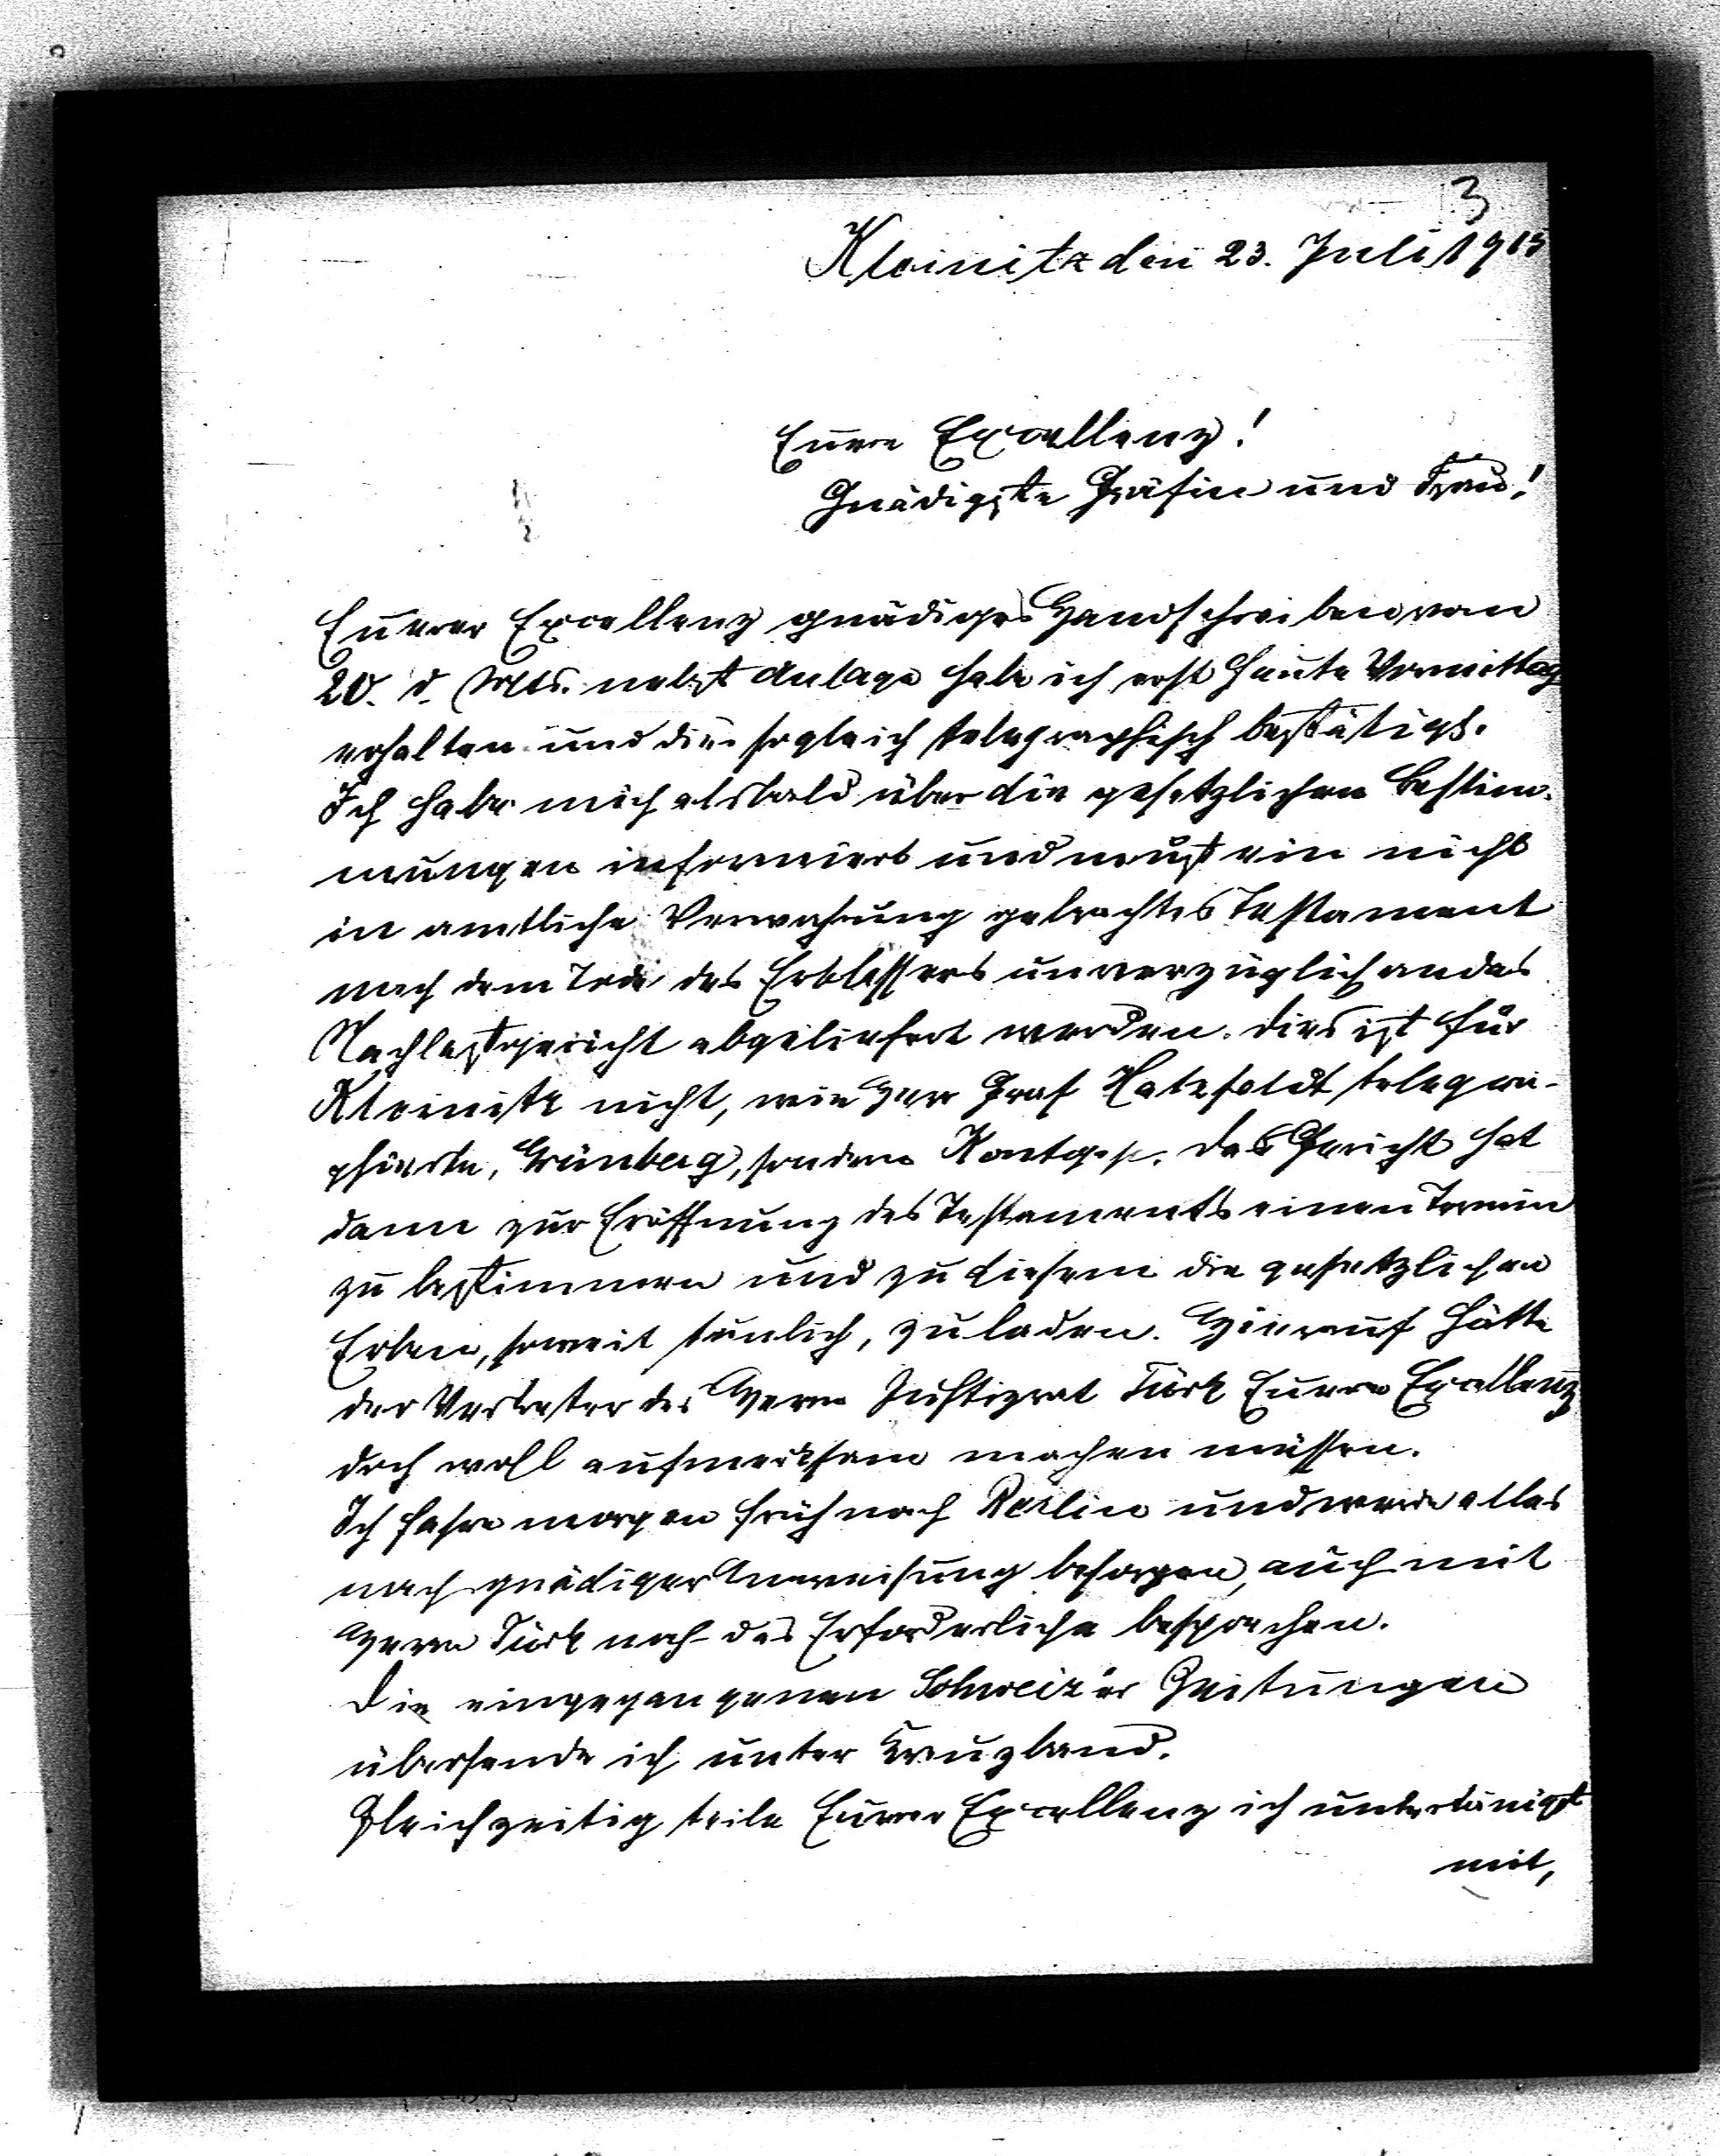 3
Kleinitz den 23. Juli 1915
Euere Excellenz!
Gnädigste Gräfin und Frau!
Euerer Excellenz gnädiges Handschreiben vom
20. d. Mts. nebst Anlage habe ich erst heute Vormittag
erhalten und dies sogleich telegraphisch bestätigt.
Ich habe mich alsbald über die gesetzlichen Bestim-
mungen informiert und muß ein nicht
in amtliche Verwahrung gebrachtes Testament
nach dem Tode des Erblassers unverzüglich an das
Nachlaßgericht abgeliefert werden. Dies ist für
Kleinitz nicht, wie Herr Graf Hatzfeldt telegra-
phierte, Grünberg, sondern Kontopp. Das Gericht hat
dann zur Eröffnung des Testaments einen Termin
zu bestimmen und zu diesem die gesetzlichen
Erben, soweit tunlich, zu laden. Hierauf hätte
der Vertreter des Herrn Justizrat Türk Euere Excellenz
doch wohl aufmerksam machen müssen.
Ich fahre morgen früh nach Berlin und werde alles
nach gnädiger Anweisung besorgen, auch mit
Herrn Türk noch das Erforderliche besprechen.
Die eingegangenen Schweizer Zeitungen
übersende ich unter Kreuzband.
Gleichzeitig teile Euere Excellenz ich untertänigst
mit,